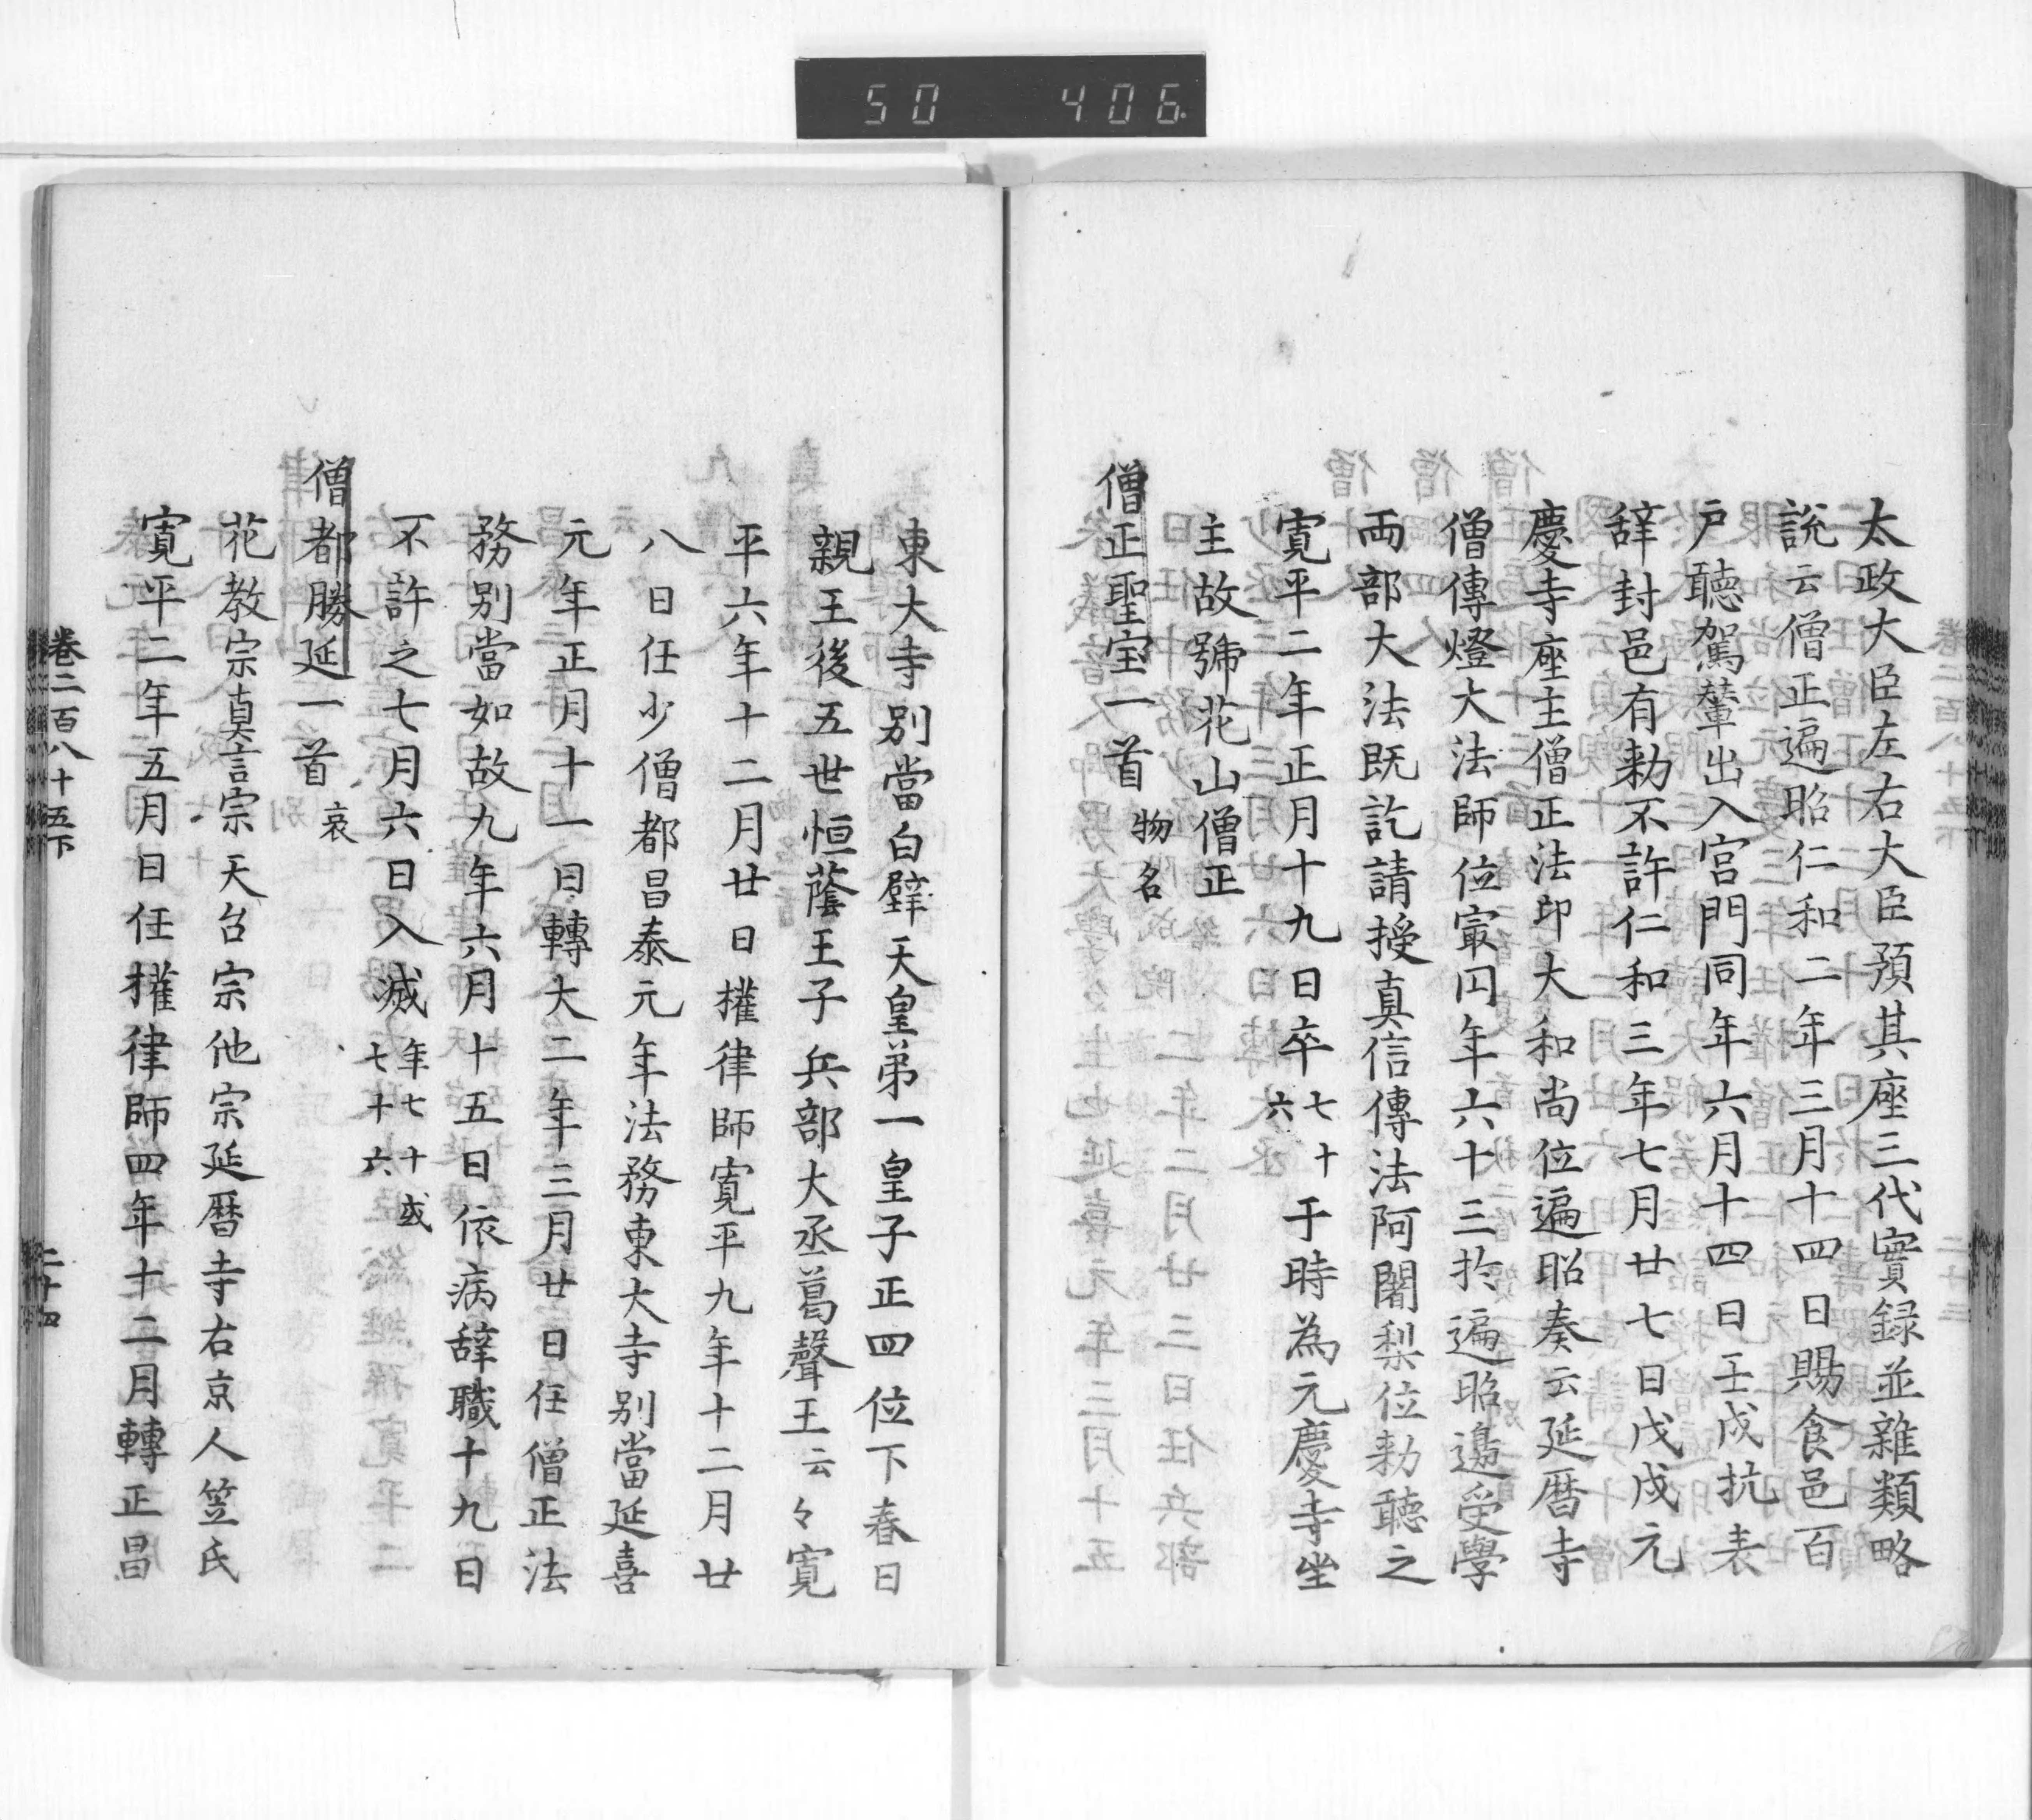 50 406
太政大臣左右大臣預其座三代實録並雜類略
説云僧正遍昭仁和二年三月十四日賜食邑百
戸聽駕輦出入宮門同年六月十四日壬戌抗表
辞封邑有勅不許仁和三年七月廿七日戊戌元
慶寺座主僧正法印大和尚位遍昭奏云延暦寺
僧傳燈大法師位㝡円年六十三於遍昭邊受學
両部大法既訖請授真信傳法阿闍梨位勅聽之
寛平二年正月十九日卒七十六于時為元慶寺坐
主故號花山僧正
僧正聖宝一首物名
東大寺別當白壁天皇第一皇子正四位下春日
親王後五世恒蔭王子兵部大丞葛聲王云々寛
平六年十二月廿日權律師寛平九年十二月廿
八日任少僧都昌泰元年法務東大寺別當延喜
元年正月十一日轉大二年三月廿日任僧正法
務別當如故九年六月十五日依病辞職十九日
不許之七月六日入滅年七十或七十六
僧都勝延一首哀
花教宗真言宗天台宗他宗延暦寺右京人笠氏
寛平二年五月日任權律師四年十二月轉正昌
巻二百八十五下 二十四